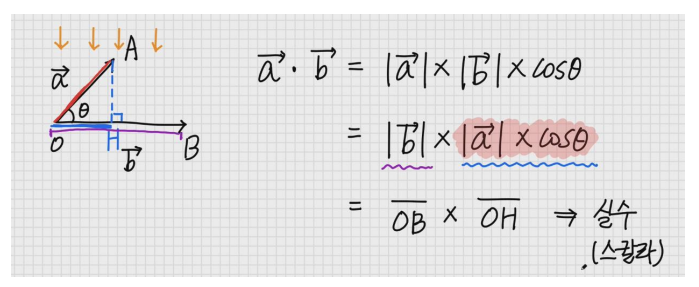 A
a⃗
θ
O
H
b⃗
B
a⃗ · b⃗ = |a⃗| × |b⃗| × cosθ
= |b⃗| × |a⃗| × cosθ
= OB × OH ⇒ 실수
(스칼라)